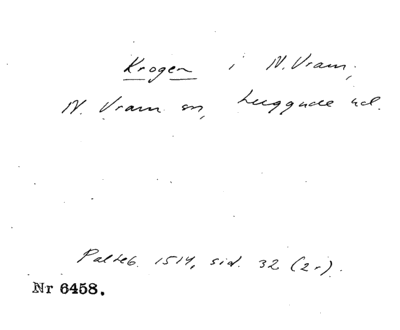 Krogen i N. Vram,
N. Vram sn, Luggude hd.
Palteb. 1514, sid. 32 (2r).
Nr 6458.